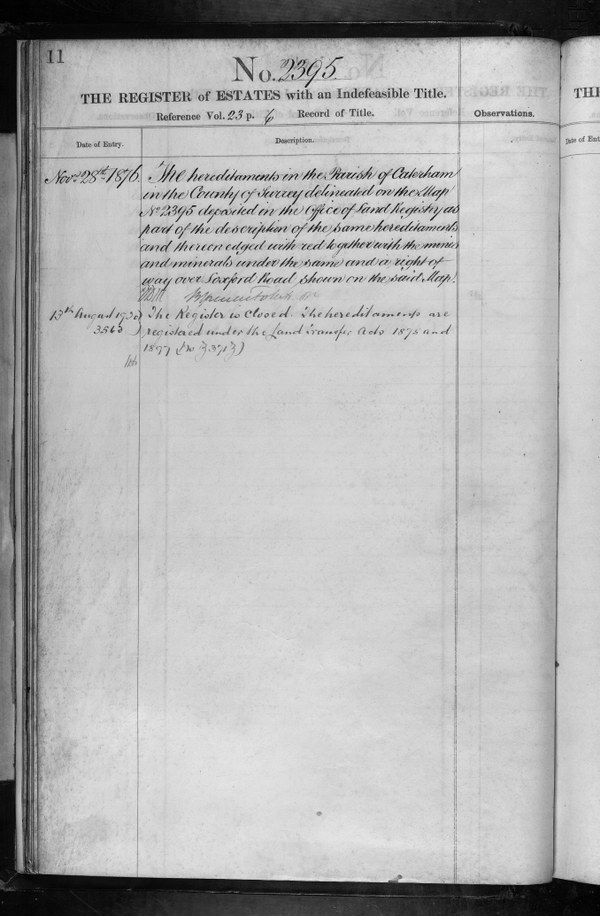 11
No. 2395.
THE REGISTER of ESTATES with an Indefeasible Title.
Reference Vol. 23 p. 6 Record of Title.
Observations.
Date of Entry.
Description.
Novr 28th 1876.
The hereditaments in the Parish of Caterham
in the County of Surrey delineated on the Map
No 2395 deposited in the Office of Land Registry as
part of the description of the same hereditaments
and thereon edged with red together with the mines
and minerals under the same and a right of
way over Loxford Road shown on the said Map.
13th August
The Register is Closed. The hereditaments are
registered under the Land Transfer Acts 1875 and
1897
TH
Date of Ent